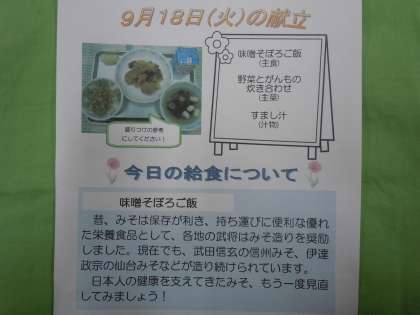 9月18日(火)の献立
味噌そぼろご飯
(主食)
野菜とがんもの
炊き合わせ
(主菜)
すまし汁
(汁物)
盛りつけの参考
にしてください!
今日の給食について
味噌そぼろご飯
昔、みそは保存が利き、持ち運びに便利な優れ
た栄養食品として、各地の武将はみそ造りを奨励
しました。現在でも、武田信玄の信州みそ、伊達
政宗の仙台みそなどが造り続けられています。
日本人の健康を支えてきたみそ、もう一度見直
してみましょう!